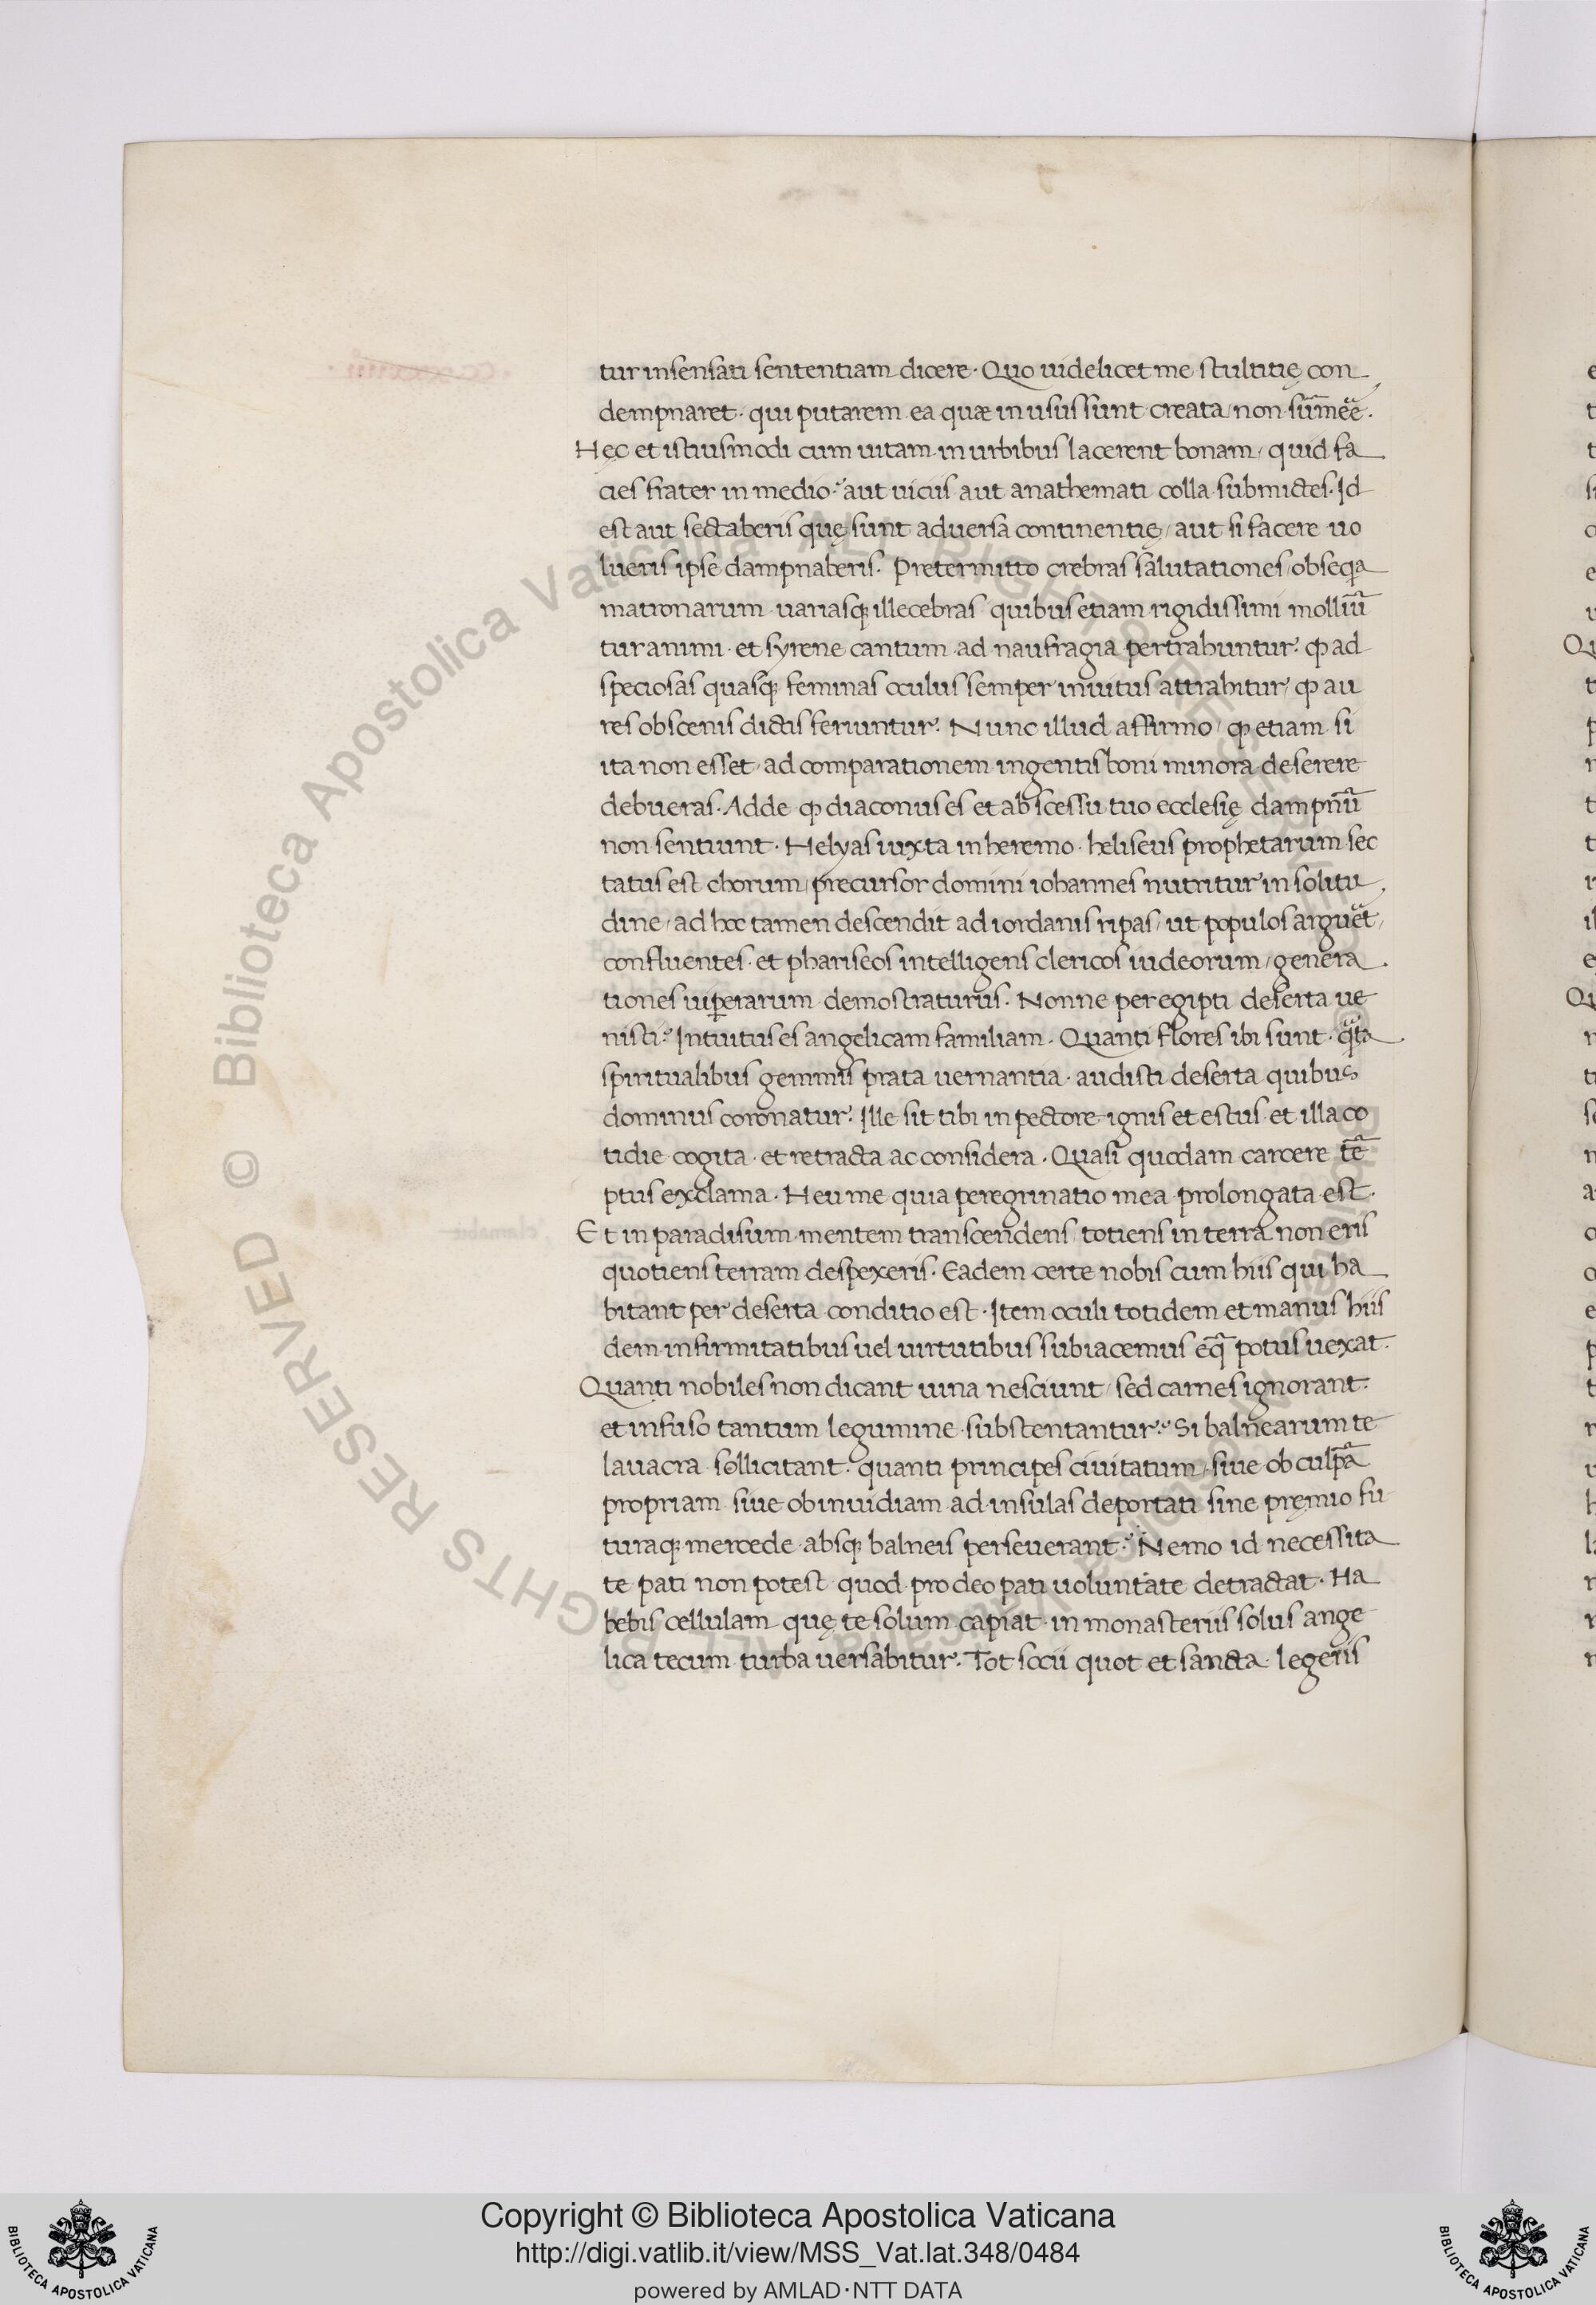 tur insensati sententiam dicere· Quo uidelicet me stultitię con
dempnaret· qui putarem ea quæ in usus sunt creata non sum̄e e͞e·
Hęc et istiusmodi cum uitam in urbibus lacerent bonam/ quid fa
cies frater in medio? aut uicus aut anathemati colla submictes· Id
est aut sectaberis quę sunt aduersa continentię/ aut si facere uo
lueris ipse dampnaberis· Pretermitto crebras salutationes/ obseqa
matronarum uariasq; illecebras quibus etiam rigidissimi molliū
tur animi· et syrene cantum ad naufragia pertrahuntur· ꝙ ad
speciosas quasq; feminas oculus semper inuitus attrahitur/ ꝙ au
res obscenis dictis feriuntur· Nunc illud affirmo/ ꝙ etiam si
ita non esset/ ad comparationem ingentis boni minora deserere
debueras· Adde ꝙ diaconus es et abscessu tuo ecclesię dampnū
non sentiunt· Helyas iuxta in heremo· heliseus prophetarum sec
tatus est chorum/ precursor domini iohannes nutritur in solitu
dine/ ad hoc tamen descendit ad iordanis ripas/ ut populos arguet
confluentes· et phariseos intelligens clericos iudeorum/ genera
tiones uiꝑerarum demostraturus· Nonne per egipti deserta ue
nisti? Intuitus es angelicam familiam· Quanti flores ibi sunt· q̄ta
spiritualibus gemmis prata uernantia· audisti deserta quibus
dominus coronatur· Ille sit tibi in pectore ignis et estus· et illa co
tidie cogita· et retracta ac considera· Quasi quodam carcere tē
ptus exclama· Heu me quia peregrinatio mea prolongata est·
Et in paradisum mentem transcendens/ totiens in terra non eris
quotiens terram despexeris· Eadem certe nobis cum hiis qui ha
bitant per deserta conditio est· Item oculi totidem et manus hiis
dem infirmitatibus uel uirtutibus subiacemus eq̄ potus uexat·
Quanti nobiles non dicant uina nesciunt/ sed carnes ignorant·
et infuso tantum legumine substentantur? Si balnearum te
lauacra sollicitant· quanti principes ciuitatum/ siue ob culpā
propriam siue ob inuidiam ad insulas deportati sine premio fu
turaq; mercede absq; balneis perseuerant? Nemo id necessita
te pati non potest quod pro deo pati uoluntate detractat· Ha
bebis cellulam quę te solum capiat· in monasteriis solus ange
lica tecum turba uersabitur· Tot socii quot et sancta legeris
Copyright © Biblioteca Apostolica Vaticana
http://digi.vatlib.it/view/MSS_Vat.lat.348/0484
powered by AMLAD·NTT DATA